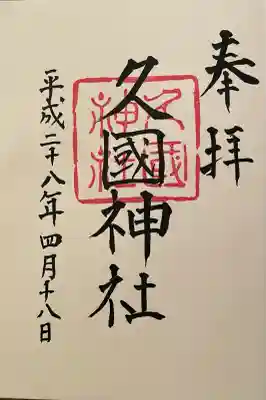 奉拝
久國神社
平成二十八年四月十八日
久國
神社